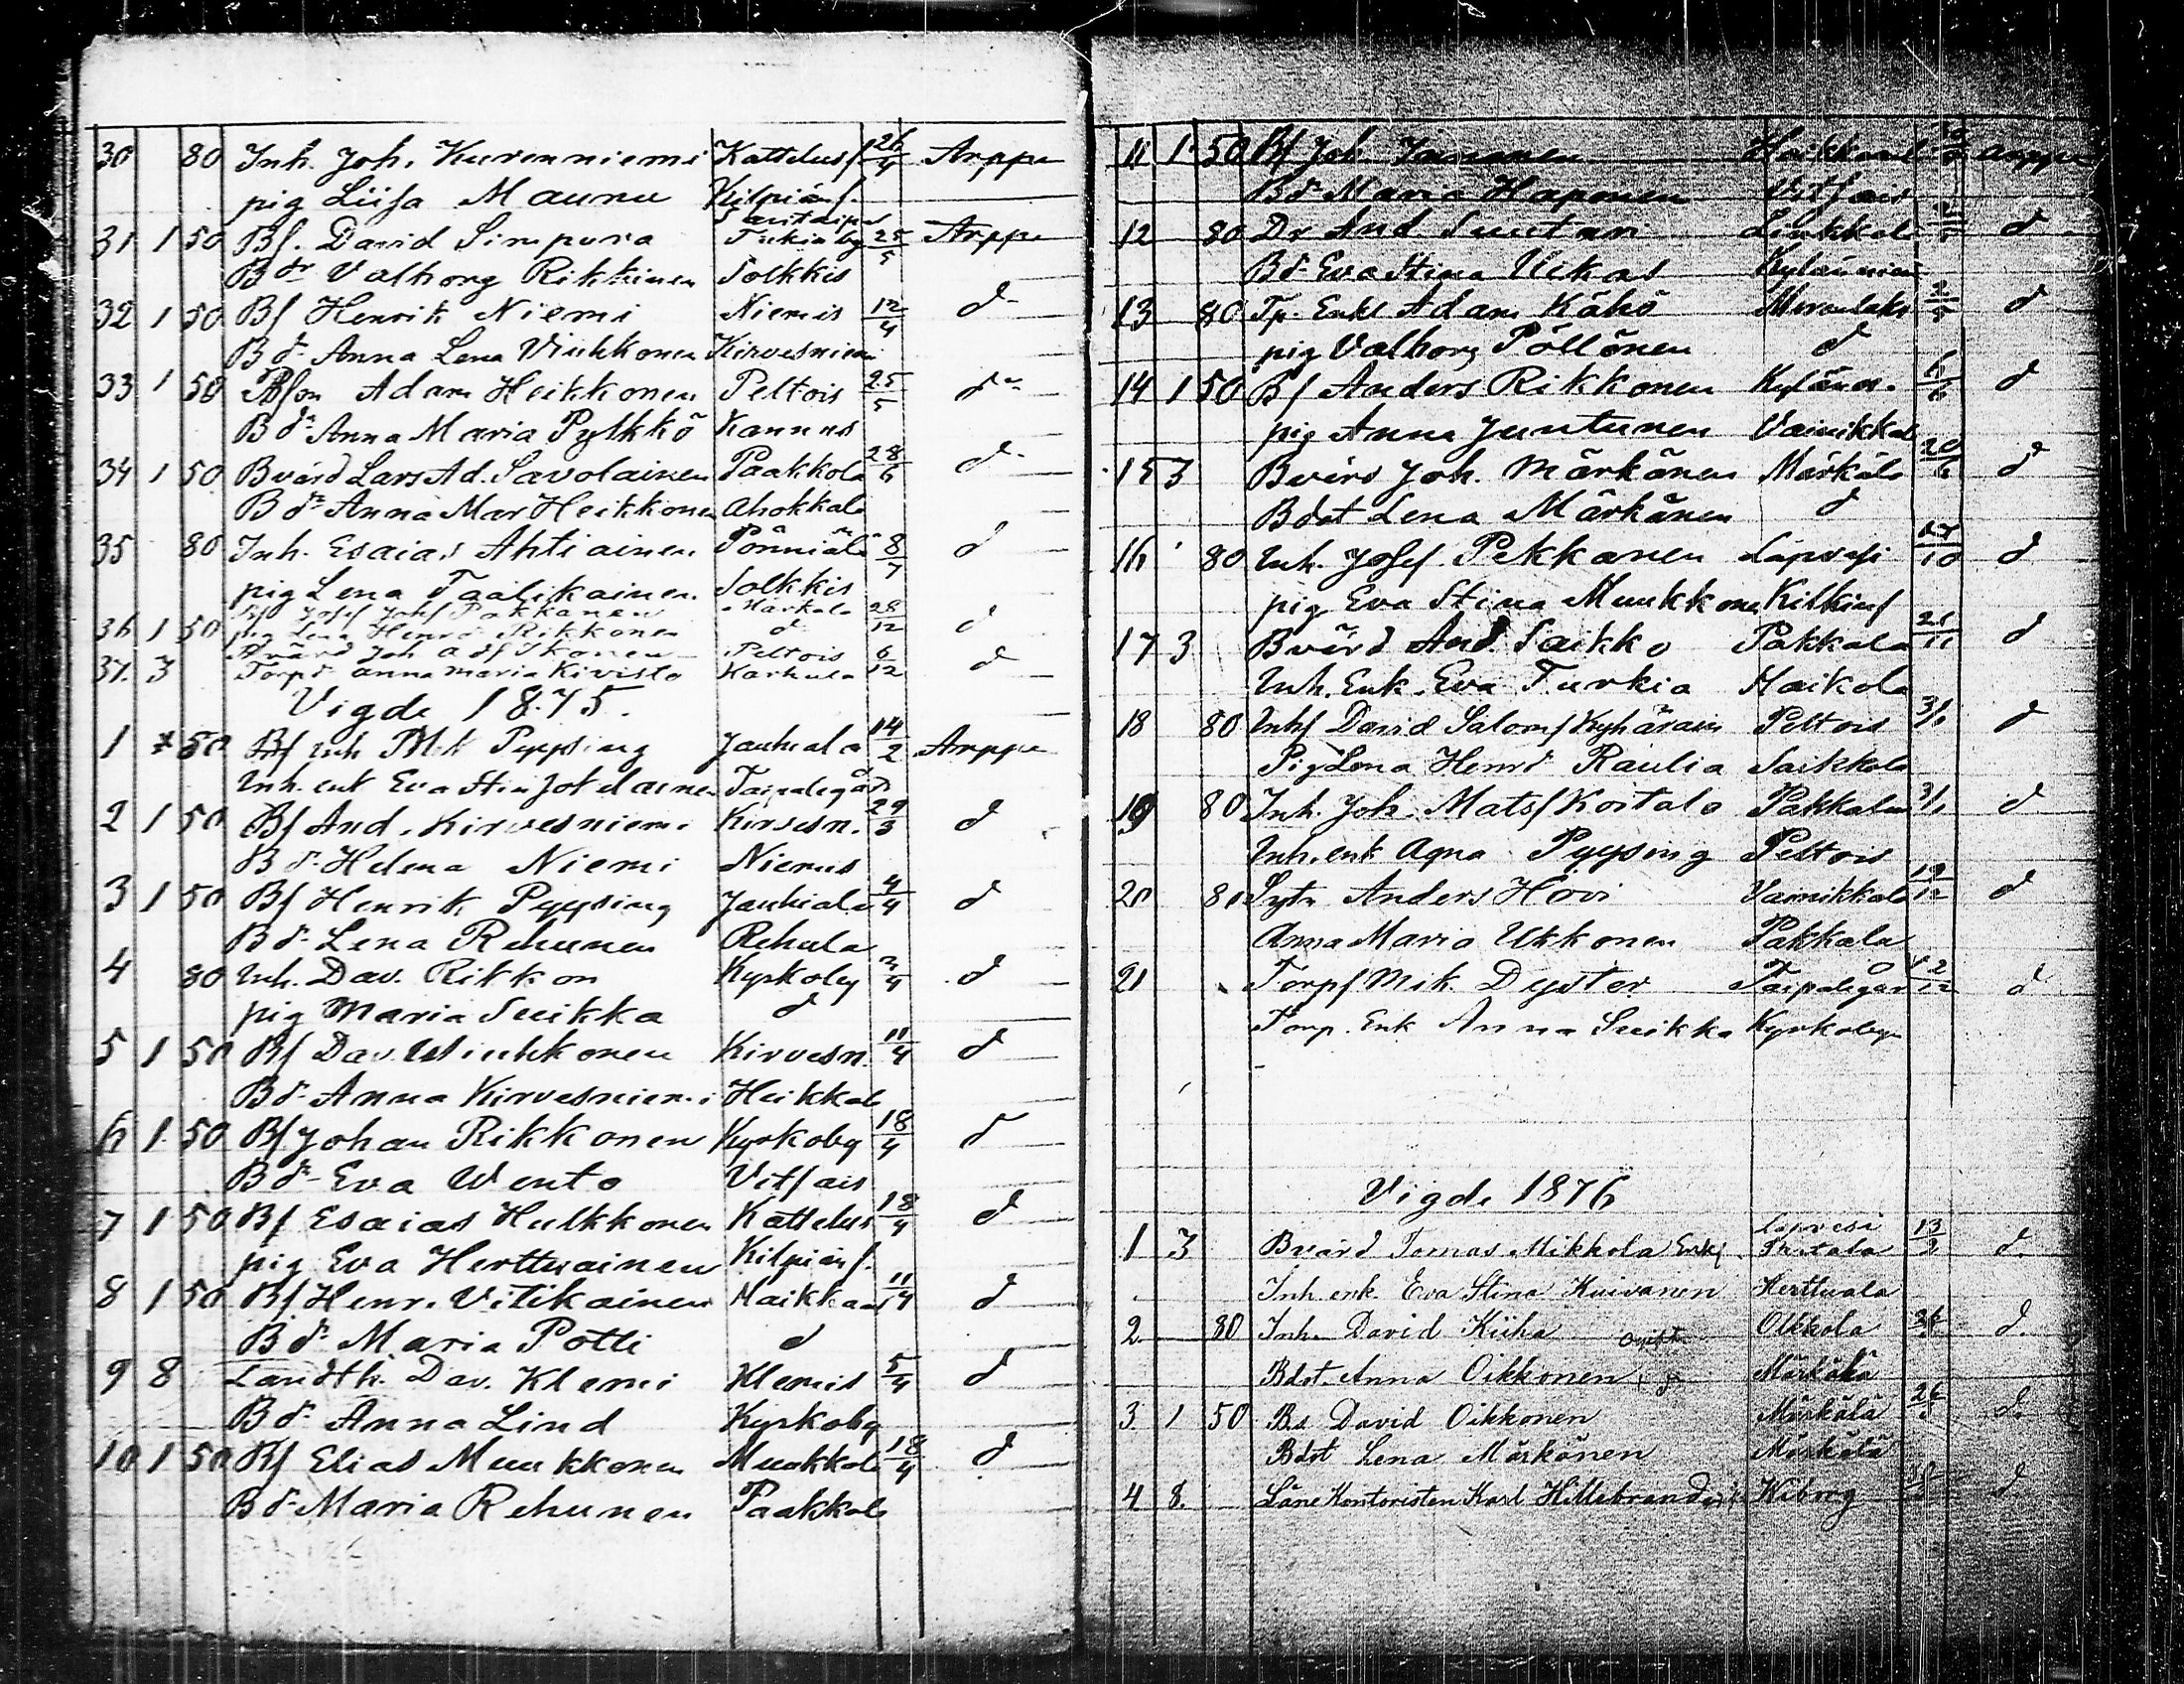 30 80 Inh. Joh. Kurenniemi Kattelus 26/4 Arppe
pig Liisa Maunu Kilpiäns.
Savitaipal
31 1 50 Bs. David Simpura Turkia by 25/5 Arppe
Bdr Valborg Rikkinen Solkkis
32 1 50 Bs Henrik Niemi Niemis 12/4 d
Bdr Anna Lena Viukkonen Kirvesniemi
33 1 50 Bson Adam Heikkonen Peltois 25/5 d
Bdr Anna Maria Pylkkö Kannus
34 1 50 Bvärd Lars Ad. Savolainen Paakkola 28/6 d
Bdr Anna Mar Heikkonen Ahokkala
35 80 Inh. Esaias Ahtiainen Pönniälä 8/7 d
pig Lena Taalikainen Solkkis
Bs Josef Johs Pakkanen Märkälä 28/12
36 1 50 pig Lena Henrd Rikkonen d d
Bvärd Joh Ads Ikonen Peltois 6/12
37. 3 Torpd Anna Maria Kivisto Karhula d
Vigde 1875.
1 50 Inh Mik Pyysing Jauhiala 14/2 Arppe
Inh. enk Eva Stin Jokelainen Taipalegård
2 1 50 Bs And. Kirvesniemi Kirvesn. 29/3 d
Bdr Helena Niemi Niemis
3 1 50 Bs Henrik Pyysing Jauhiala 4/4 d
Bdr Lena Rehunen Rehula
4 80 Inh. Dav. Rikkon Kyrkoby d
pig Maria Suikka d
5 1 50 Bs Dav. Wiukkonen Kirvesn. 11/4 d
Bdr Anna Kirvesniemi Heikkal
6 1 50 Bs Johan Rikkonen Kyrkoby 18/4 d
Bdr Eva Wento Vitsais
7 1 50 Bs Esaias Hulkkonen Kattelus 18/4 d
pig Eva Herttuainen Kilpiäns.
8 1 50 Bs Henr. Vitikainen Haikkaan 11/4 d
Bdr Maria Potti d
9 8 Landth. Dav. Klemi Klemis 5/4 d
Bdr Anna Lind Kyrkoby
10 1 50 Bs Elias Muukkonen Muukkola 18/4 d
Bdr Maria Rehunen Paakkola
11 1 50 Bs Joh. Arppe
Bdr Maria Haponen Vitsais
12 80 Dr And Suutari Linkkala d
Bdr Eva Stina Ukas Kylänniemi
13 80 Tp. Enkl Adam Kähö 2/5 d
pig Valborg Pöllönen d
14 1 50 Bs Anders Rikkonen 6/6 d
pig Anna Juntunen Vainikkal
15 3 Bvärd Joh. Märkänen Märkälä 20/6 d
Bdot Lena Märkänen d
16 80 Inh. Josef Pekkanen Lapvesi d
pig Eva Stina Muukkonen
17 3 Bvärd And. Saikko Pakkala 21/11 d
Inh. Enk. Eva Turkia Haikola
18 80 Inhs David Saloms Kyhäräin Peltois d
Pig Lena Henrd Raulia Saikkola
19 80 Inh. Joh. Mats Koitala Pakkala d
Inh. enk Agna Pyysing Peltois
20 80 Sytn Anders Hovi Vainikkala 19/12 d
Anna Maria Ukkonen Pakkala
21 Torps Mik. Dyster Taipalegård 12/12 d
Torp. Enk Anna Suikka Kyrkoby
Vigde 1876
Lapvesi
1 3 Bvärd Tomas Mikkola Enkl. 13/2 d.
Inh enk Eva Stina Kuivanen Herttuala
2 80 Inh. David Kiiha Olkkola d.
Bdot. Anna Oikkonen Märkälä
3 1 50 Bs David Oikkonen Märkälä d.
Bdot Lena Märkönen Märkälä
4 8. Läne Kontoristen Karl Hillebrand Wiborg d